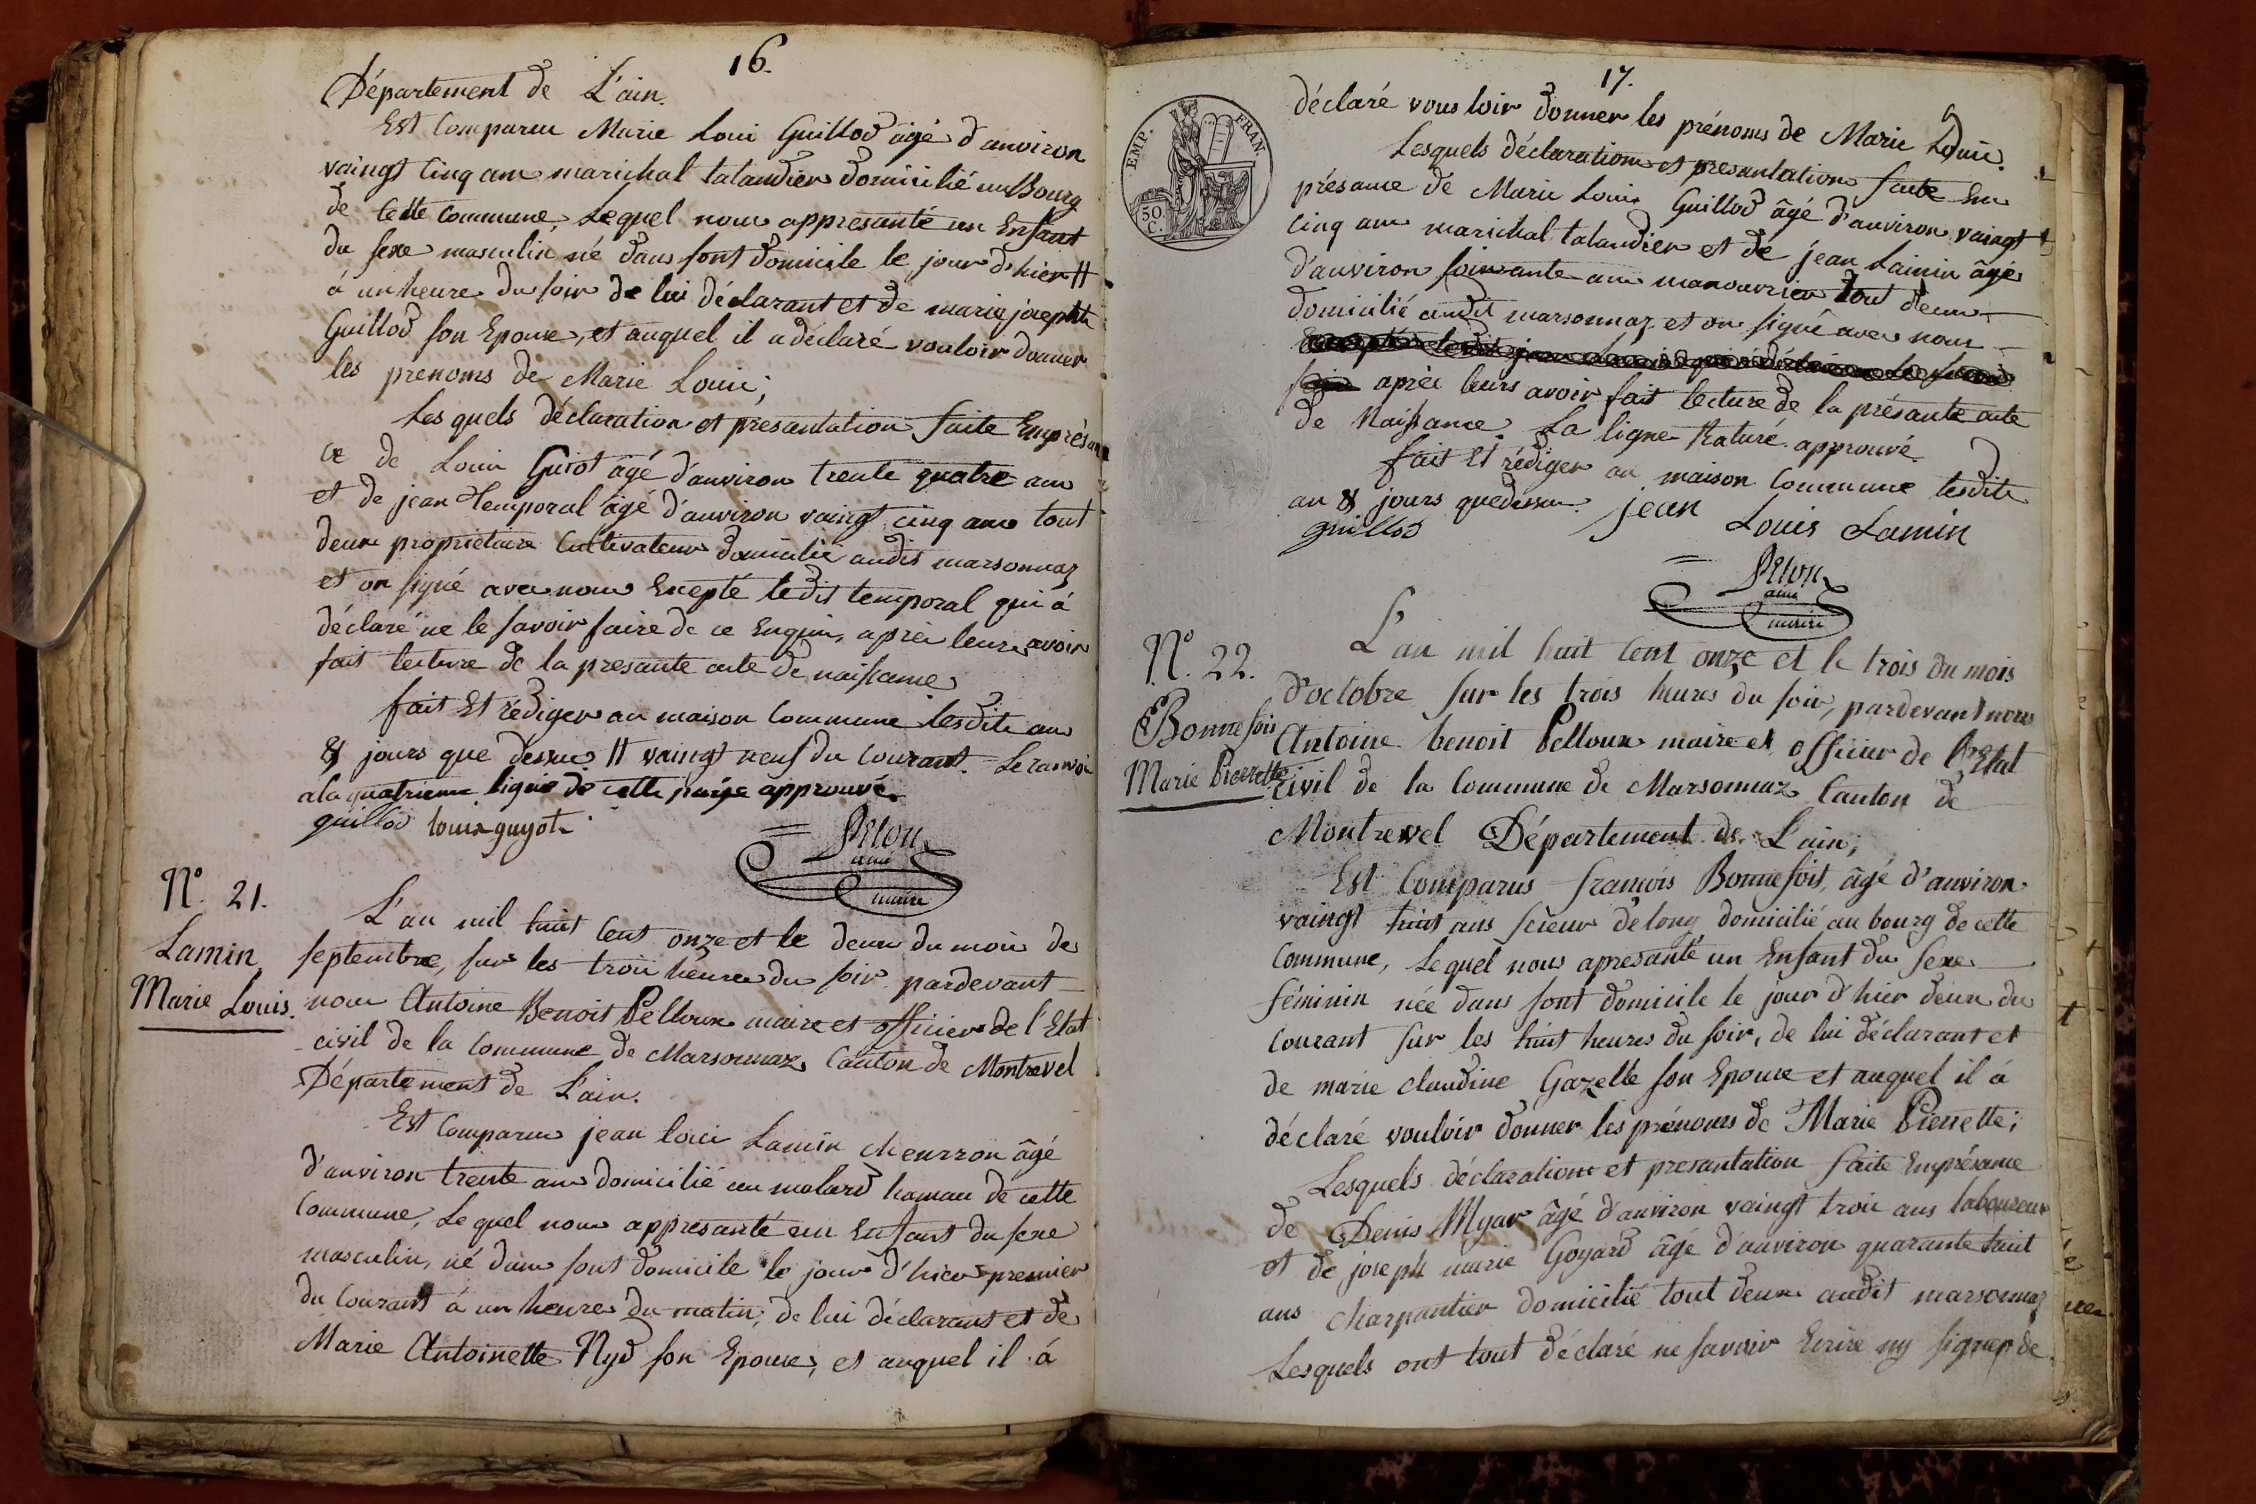 16.
Département de L'ain.
Est Comparu Marie Loui Guillod âgé d'anviron
vaingt Cinq ans marichal talandier domicilié au Bourg
de Cette Commune, Lequel nous appresanté un Enfant
du sexe masculin né dans sont domicile le jour d'hier #
à un heure du soir de lui déclarant et de marie josephte
Guillod son Epouse, et auquel il a déclaré vouloir donner
les prenoms de Marie Louis;
Les quels déclaration et presantation faite Enprésan
ce de Louis Guiot âgé d'anviron trente quatre ans
et de jean Temporal âgé d'anviron vaingt cinq ans tout
deux propriétaire Cultivateur domicilié audit marsonnaz
et on signé avec nous Excepté ledit temporal qui à
déclaré ne le savoir faire de ce Enquis, après leurs avoir
fait lecture de la presante acte de naissance
fait Et rédiger an maison Commune lesdits an
& jours que dessus # vaingt neuf du Courant. Le ranvoi
ala quatrieme ligne de cette paije approuvé.
guillod louis guyot
Pelou
aine
maire
N.° 21.
Lamin
Marie Louis.
L'an mil huit Cent onze et le deux du mois de
septembre, sur les trois heures du soir pardevant
nous Antoine Benoit Pelloux maire et officier de l'Etat
civil de la Commune de Marsonnaz Canton de Montrevel
Département de L'ain.
Est Comparu jean loui Lamin âgé
d'anviron trente ans domicilié au molard hamau de cette
Commune, Le quel nous appresanté un Enfant du sexe
masculin, né dans sont domicile le jour d'hier premier
du Courant à un heure du matin; de lui déclarant et de
Marie Antoinette Nyd son Epouse, et auquel il à
17.
EMP. FRAN.
50.
C.
déclaré vous loir donner les prénoms de Marie Louis.
Lesquels déclaration et presantation faite En
présance de Marie Louis Guillod âgé d'anviron vaingt
Cinq ans marichal talandier et de jean Lamin âgé
d'anviron soixante ans manouvrier tout deux
domicilié audit marsonnaz et on signé avec nous
après leurs avoir fait lecture de la présante acte
de Naissance. La ligne Raturé approuvé.
fait Et rédiger an maison Commune lesdits
an & jours quedessu. jean Louis Lamin
guillod
Pelou
aine
maire
N.° 22.
Bonnefois
Marie Pierrette
L'an mil huit Cent onze et le trois du mois
d'octobre sur les trois heures du soir, pardevant nous
Antoine benoit Pelloux maire et officier de l'Etat
Civil de la Commune de Marsonnaz Canton de
Montrevel Département de L'ain;
Est Comparus francois Bonnefoit, âgé d'anviron
vaingt huit ans scieur de long domicilié au bourg de cette
Commune, Lequel nous apresanté un Enfant du sexe
féminin née dans sont domicile le jour d'hier deux du
Courant sur les huit heures du soir, de lui déclarant et
de marie claudine Gazelle son Epouse et auquel il à
déclaré vouloir donner les prénoms de Marie Pierrette;
Lesquels déclaration et presantation faite Enprésance
de Denis Myar âgé d'anviron vaingt trois ans laboureur
et de joseph marie Goyard âgé d'anviron quarante huit
ans charpantier domicilié tout deux audit marsonnaz
Lesquels ont tout déclaré ne savoir Ecrire ny signer de